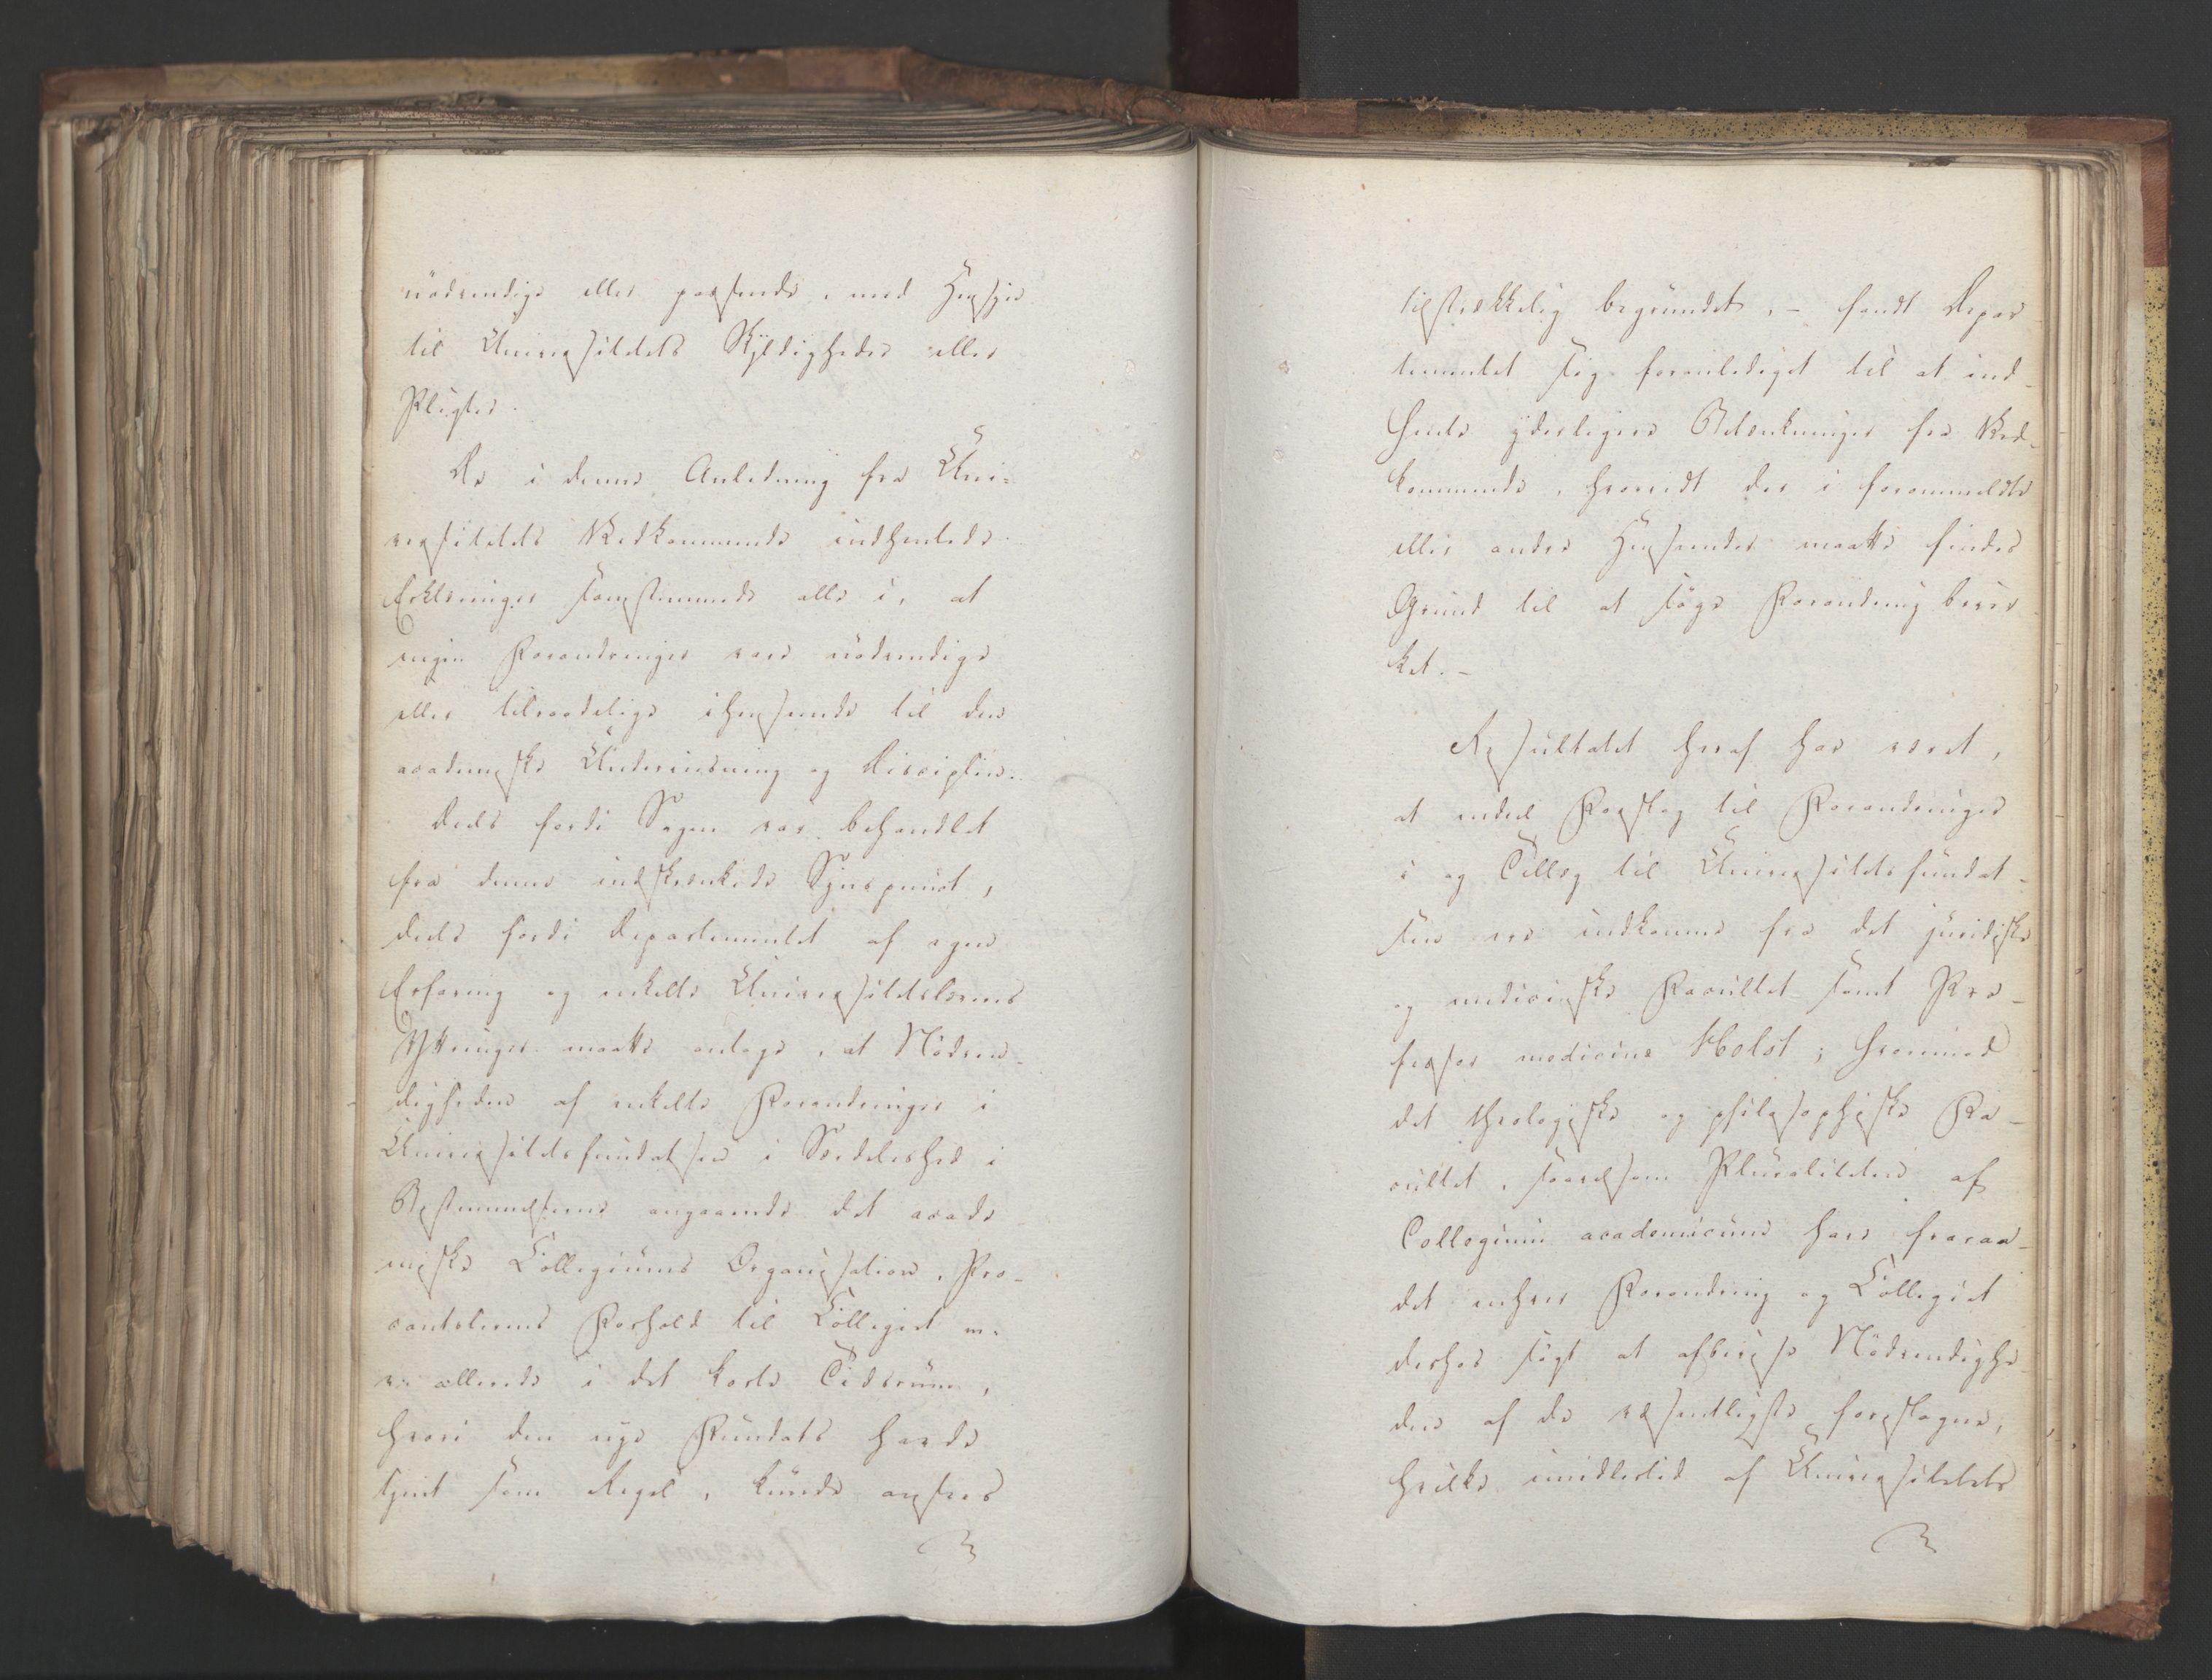 nödvendige eller passende, med Hensyn
til Universitetets Skyldigheder eller
Pligter.
De i denne Anledning fra Uni-
versitetets Vedkommende indhentede
Erklæringer samstemmede alle i, at
ingen Forandringer vare nödvendige
eller tilraadelige ihenseende til den
academiske Underviisning og Disciplin.
Deels fordi Sagen var behandlet
fra denne indskrænkede Synspunct,
deels fordi Departementet af egen
Erfaring og enkelte Universitetslæreres
Yttringer maatte antage, at Nödven-
digheden af enkelte Forandringer i
Universitetsfundatsen i Særdeleshed i
Bestemmelserne angaaende det acade-
miske Collegiums Organisation, Pro-
cantslerens Forhold til Collegiet m.
v. allerede i det korte Tidsrum,
hvori den nye Fundats havde
tjent som Regel, kunde ansees
tilstrækkelig begrundet, - fandt Depar
tementet sig foranlediget til at ind-
hente yderligere Betænkninger fra Ved-
kommende, hvorvidt der i forommeldte
eller andre Henseender maatte findes
Grund til at söge Forandring bevir
ket. -
Resultatet heraf har været,
at endeel Forslag til Forandringer
i og Tillæg til Universitetsfundat-
sen ere indkomne fra det juridiske
og medicinske Facultet samt Pro-
fessor medicinæ Holst; hvorimod
det theologiske og philosophiske Fa-
cultet, saavelsom Pluraliteten af
Collegium academicum have fraraa-
det enhver Forandring og Collegiet
derhos sögt at afbevise Nödvendighe
den af de væsentligste foreslagne,
hvilke imidlertid af Universitetets